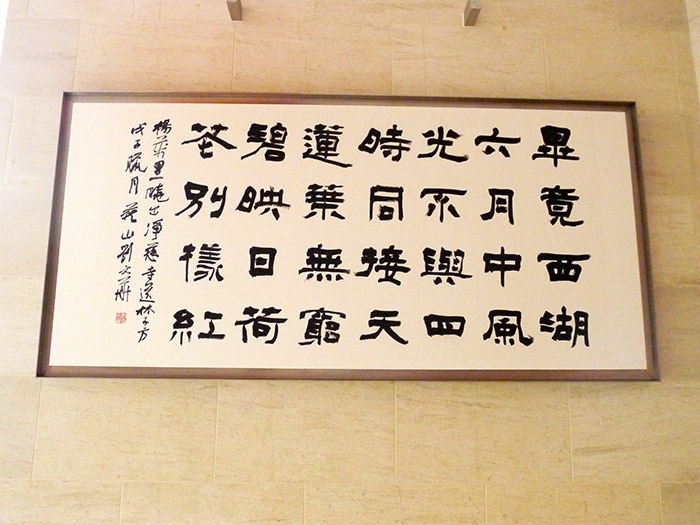 畢竟西湖
六月中風
光不與四
時同接天
蓮葉無窮
碧映日荷
花別樣紅
楊萬里曉出淨慈寺送林子方
戊子臘月 山劉